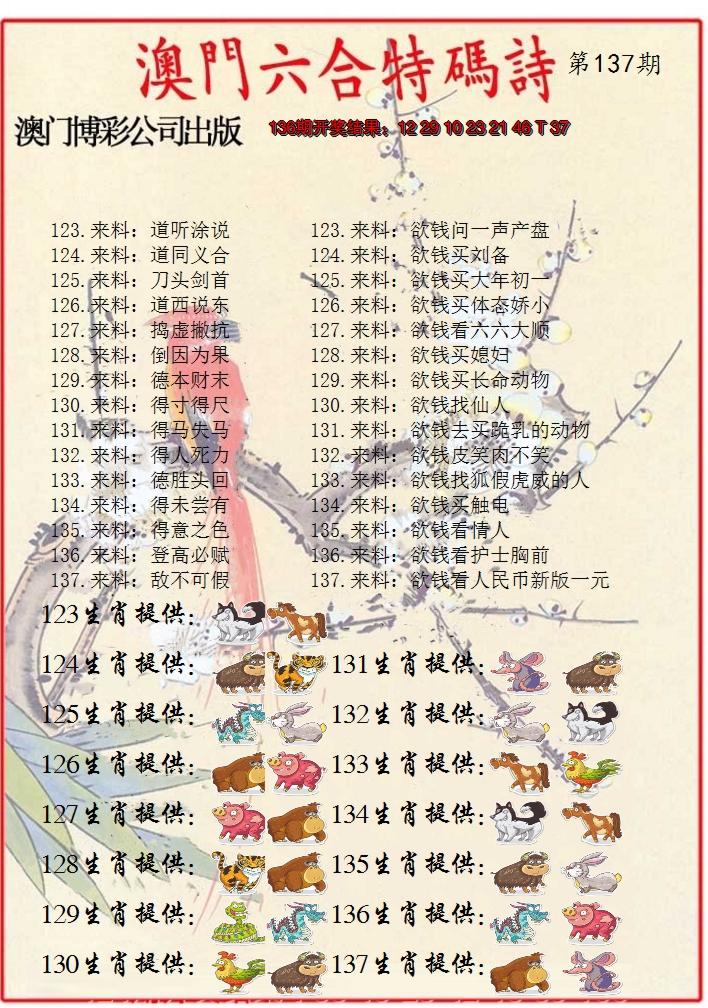 澳門六合特碼詩 第137期
澳门博彩公司出版 136期开奖结果：12 29 10 23 21 46 T 37
123.来料：道听涂说 123.来料：欲钱问一声产盘
124.来料：道同义合 124.来料：欲钱买刘备
125.来料：刀头剑首 125.来料：欲钱买大年初一
126.来料：道西说东 126.来料：欲钱买体态娇小
127.来料：捣虚撇抗 127.来料：欲钱看六六大顺
128.来料：倒因为果 128.来料：欲钱买媳妇
129.来料：德本财末 129.来料：欲钱买长命动物
130.来料：得寸得尺 130.来料：欲钱找仙人
131.来料：得马失马 131.来料：欲钱去买跪乳的动物
132.来料：得人死力 132.来料：欲钱皮笑肉不笑
133.来料：德胜头回 133.来料：欲钱找狐假虎威的人
134.来料：得未尝有 134.来料：欲钱买触电
135.来料：得意之色 135.来料：欲钱看情人
136.来料：登高必赋 136.来料：欲钱看护士胸前
137.来料：敌不可假 137.来料：欲钱看人民币新版一元
123生肖提供：
124生肖提供： 131生肖提供：
125生肖提供： 132生肖提供：
126生肖提供： 133生肖提供：
127生肖提供： 134生肖提供：
128生肖提供： 135生肖提供：
129生肖提供： 136生肖提供：
130生肖提供： 137生肖提供：